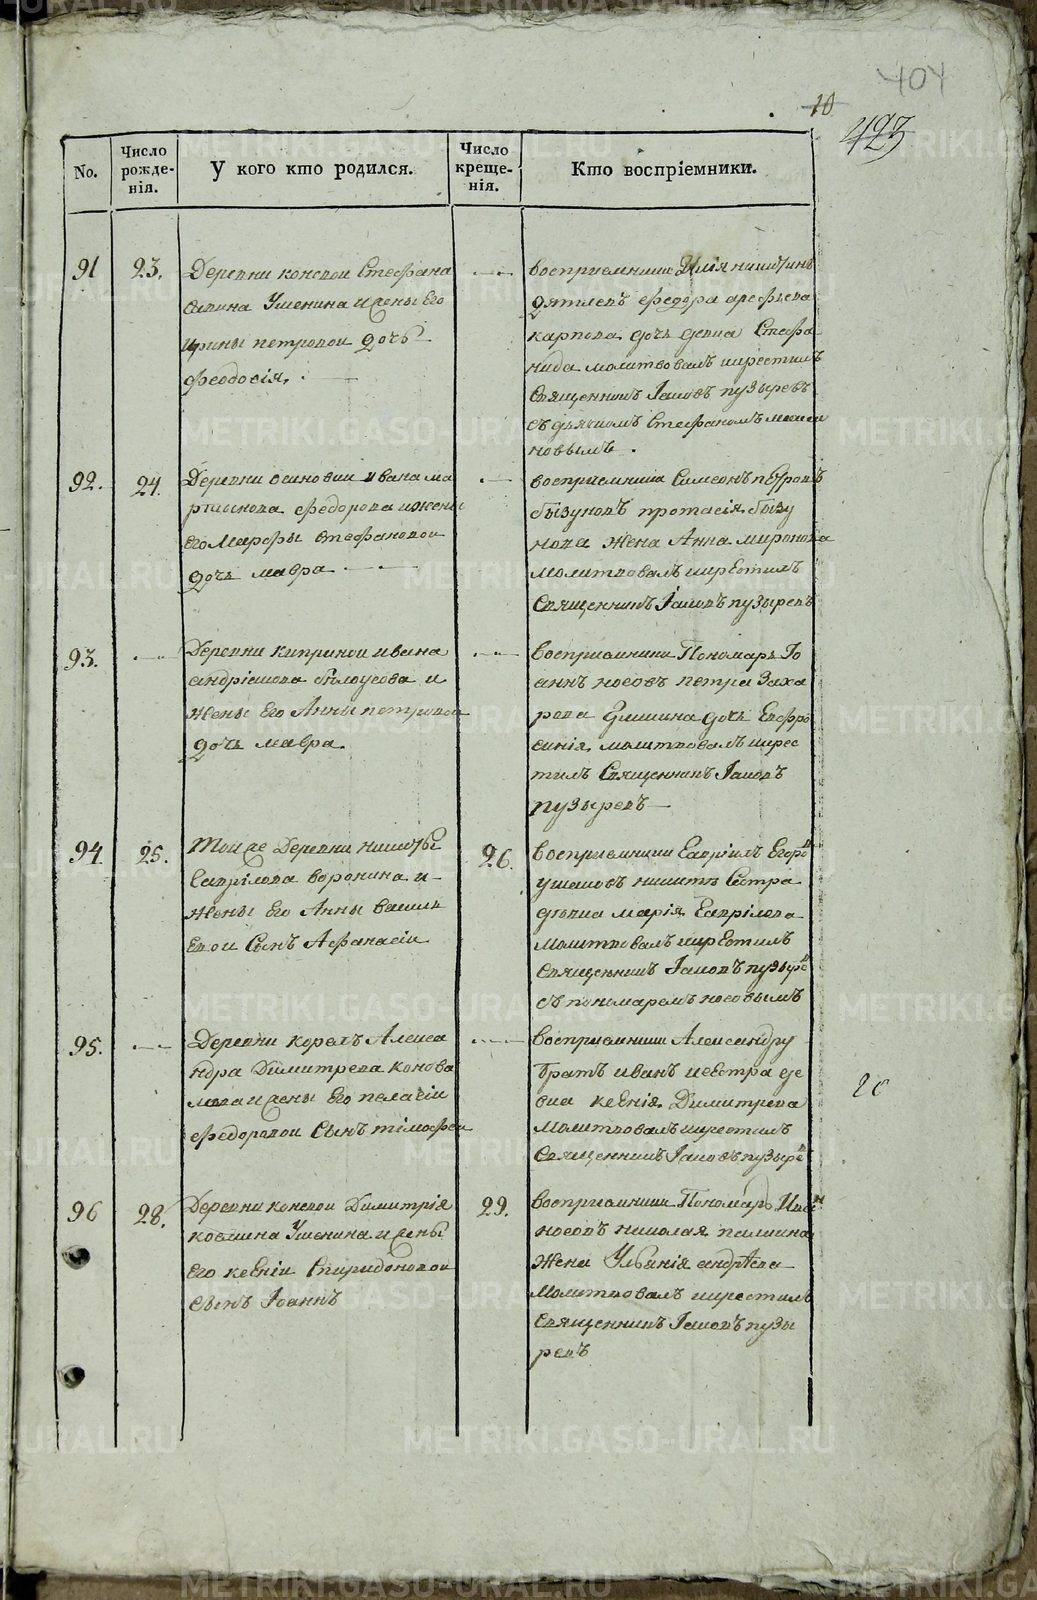 404
10
423
No.
Число рожденія.
У кого кто родился.
Число крещенія.
Кто воспріемники.
91
23.
Деревни коневои Стефана
Савина Ушенина и жены Его
Ирины петровои дочь
феодосія.
воспріемники Илія никитинъ
дятлевъ федора арефьева
карпова дочь девка Стефа
нида молитвовалъ и крестилъ
Священникъ Іаковъ пузыревъ
съ дьячкомъ Стефаномъ
новымъ.
92.
24.
Деревни осиновки ивана ма
ртынова федорова и жены
Его Марфы Стефановои
дочь мавра
воспріемники Симеонъ петровъ
бызуновъ протасія бызу
нова жена Анна миронова
молитвовалъ и крестилъ
Священникъ Іаковъ пузыревъ
93.
Деревни киприной ивана
андріянова белоусова и
жены Его Анны петровои
дочь мавра.
воспріемники Пономарь Іо
аннъ носовъ петра Заха
рова дочь Евфро
синія молитвовалъ и крес
тилъ Священникъ Іаковъ
пузыревъ
94
25.
Тои же Деревни никиты
Гаврілова воронина и
жены Его Анны васил
евои Сынъ Афанасіи
26.
воспріемники Гавріилъ Егоро
ушаковъ никиты Сестра
девка марія Гаврілова
молитвовалъ и крестилъ
Священникъ Іаковъ пузырев
съ пономаремъ носовымъ
95.
Деревни Алекса
ндра Димитрева конова
лова и жены Его пелагіи
федоровои Сынъ тімофеи
воспріемники Александру
братъ иванъ и сестра де
вка ксенія Димитрева
молитвовалъ и крестилъ
Священникъ Іаковъ пузырев
96
28.
Деревни коневои Димитрія
козмина Ушенина и жены
Его ксеніи Спиридоновои
Сынъ Іоаннъ
29.
воспріемники Пономарь Иван
носовъ николая
жена Ульянія андреева
молитвовалъ и крестилъ
Священникъ Іаковъ пузы
ревъ
METRIKI.GASO-URAL.RU